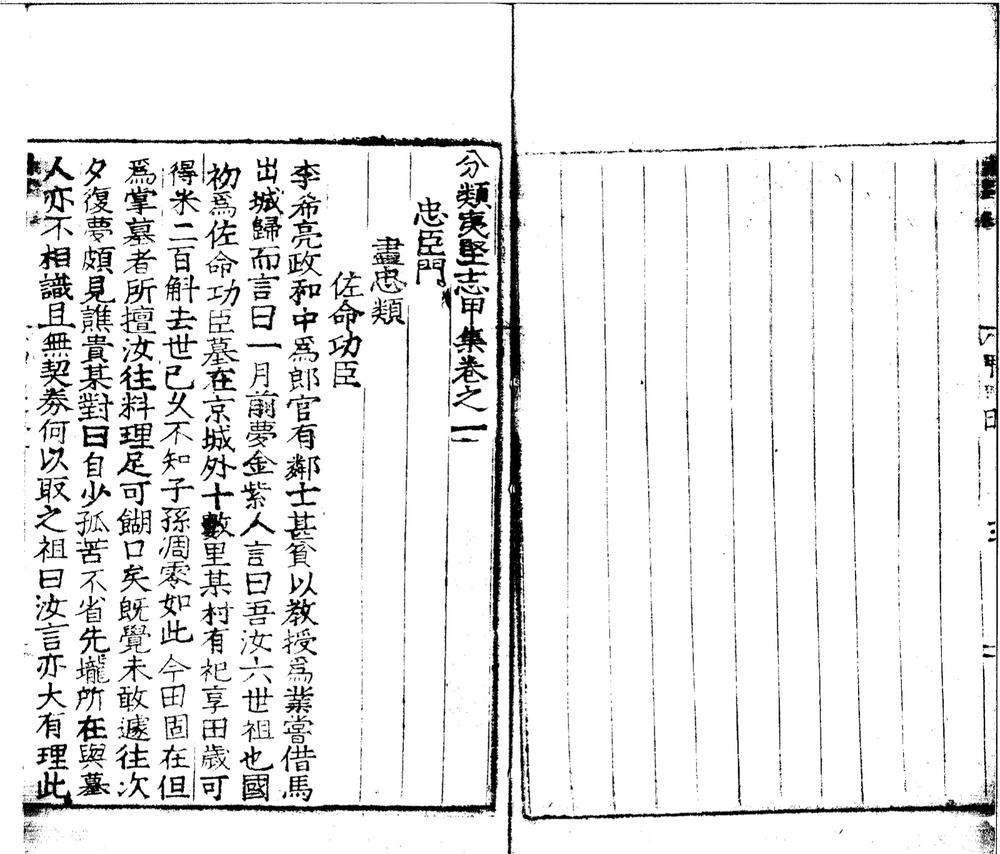 分類夷堅志甲集卷之一
忠臣門
盡忠類
佐命功臣
李希亮政和中爲郎官有鄰士甚貧以教授爲業嘗借馬
出城歸而言曰一月前夢金紫人言曰吾汝六世祖也國
初爲佐命功臣墓在京城外十數里某村有祀享田歲可
得米二百斛去世已久不知子孫凋零如此今田固在但
爲掌墓者所擅汝往料理足可餬口矣既覺未敢遽往次
夕復夢頗見譙責某對曰自少孤苦不省先壠所在與墓
人亦不相識且無契券何以取之祖曰汝言亦大有理此